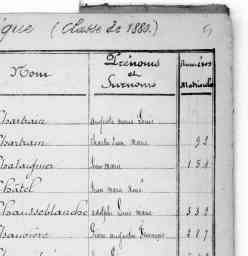 ique (Classe de 1880.)
Nom Prénoms et Surnoms Numéros Matricules
Chartrain auguste marie Louis
Chartrain Charles Louis Marie 92
Chataignier Jean marie 154
Châtel Jean marie René
Chausseblanche adolphe Louis marie 532
Chauvière Pierre auguste François 217